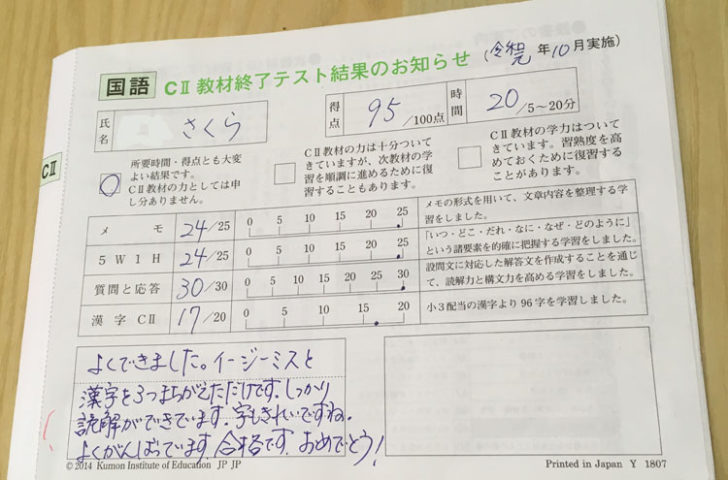 国語 CⅡ教材終了テスト結果のお知らせ (令和元年10月実施)
氏名 さくら
得点 95/100点
時間 20/5~20分
CⅡ
所要時間・得点とも大変
よい結果です。
CⅡ教材の力としては申
し分ありません。
CⅡ教材の力は十分ついて
きていますが、次教材の学
習を順調に進めるために復
習することもあります。
CⅡ教材の学力はついて
きています。習熟度を高
めておくために復習する
ことがあります。
メモ 24/25 0 5 10 15 20 25
メモの形式を用いて、文章内容を整理する学
習をしました。
5W1H 24/25 0 5 10 15 20 25
「いつ・どこ・だれ・なに・なぜ・どのように」
という諸要素を的確に把握する学習をしました。
質問と応答 30/30 0 5 10 15 20 25 30
設問文に対応した解答文を作成することを通じ
て、読解力と構文力を高める学習をしました。
漢字CⅡ 17/20 0 5 10 15 20
小3配当の漢字より96字を学習しました。
よくできました。イージーミスと
漢字を3つまちがえただけです。しっかり
読解ができています。字もきれいですね。
よくがんばっています。合格です。おめでとう!
© 2014 Kumon Institute of Education JP JP
Printed in Japan Y 1807